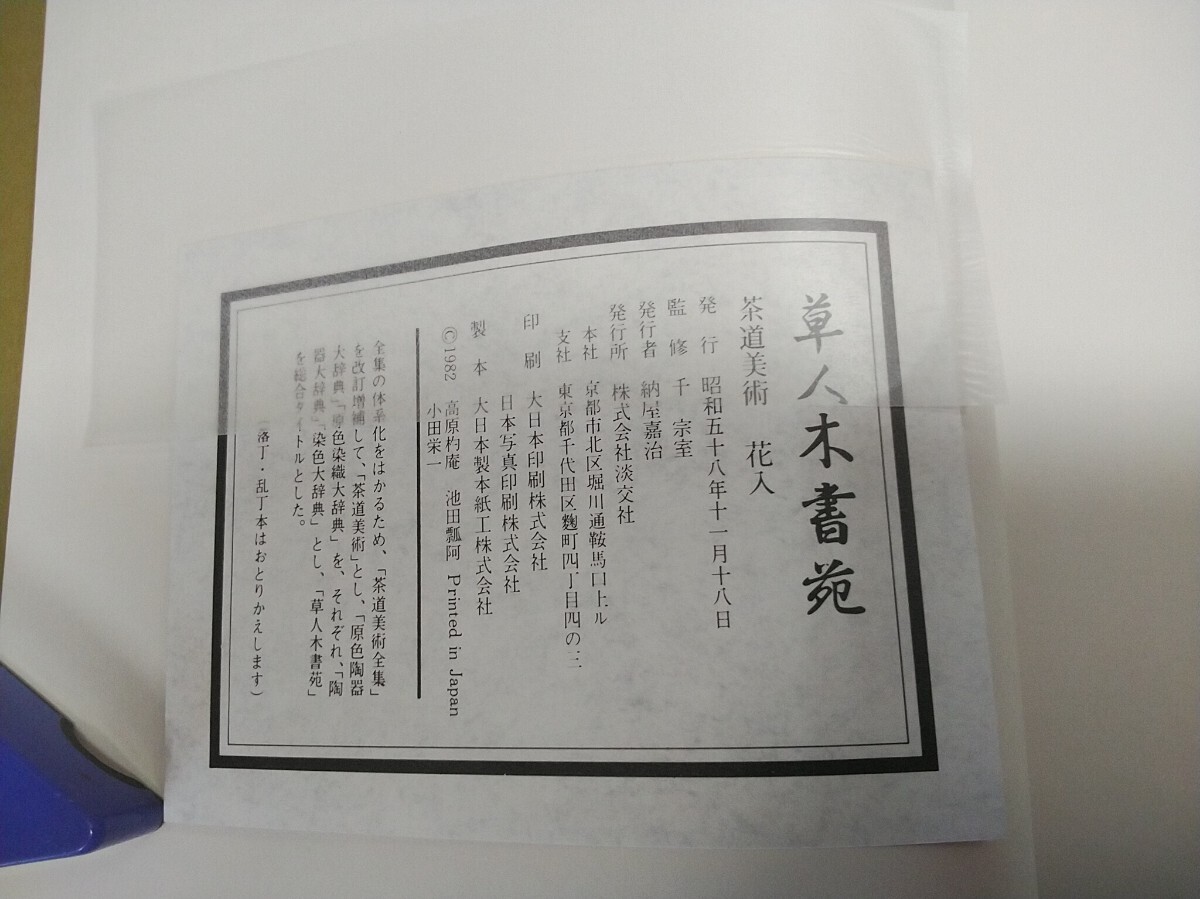 草人木書苑
茶道美術　花入
発行　昭和五十八年十一月十八日
監修　千　宗室
発行者　納屋嘉治
発行所　株式会社淡交社
本社　京都市北区堀川通鞍馬口上ル
支社　東京都千代田区麴町四丁目四の二
印刷　大日本印刷株式会社
日本写真印刷株式会社
製本　大日本製本紙工株式会社
©1982　高原杓庵　池田瓢阿　Printed in Japan
小田栄一
全集の体系化をはかるため、「茶道美術全集」
を改訂増補して、「茶道美術」とし、「原色陶器
大辞典」「原色染織大辞典」を、それぞれ、「陶
器大辞典」「染色大辞典」とし、「草人木書苑」
を総合タイトルとした。
（落丁・乱丁本はおとりかえします）